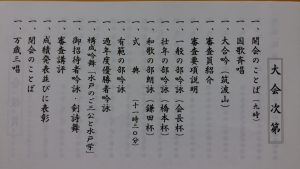 大会次第
一、開会のことば(九時)
一、国歌斉唱
一、大合吟(筑波山)
一、審査員紹介
一、審査要項説明
一、一般の部吟詠(会長杯)
一、壮年の部吟詠(橋本杯)
一、和歌の部朗詠(鎌田杯)
一、式典(十一時三〇分)
一、有範の部吟詠
一、過年度優勝者吟詠
構成吟舞「水戸のご三公と水戸学」
一、御招待者吟詠・剣詩舞
一、審査講評
一、成績発表並びに表彰
一、閉会のことば
一、万歳三唱